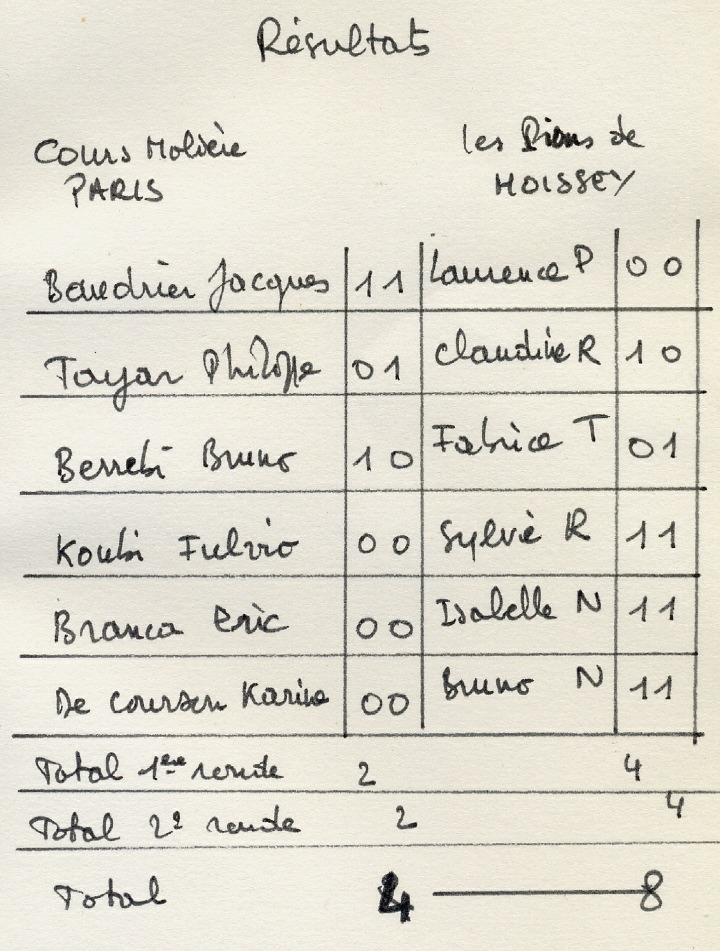 Résultats
Cours Molière les Pions de
PARIS MOISSEY
Baudrier Jacques 1 1 Laurence P 0 0
Tayar Philippe 0 1 Claudine R 1 0
Berrebi Bruno 1 0 Fabrice T 0 1
Koubi Fulvio 0 0 Sylvie R 1 1
Branca Eric 0 0 Isabelle N 1 1
De Courson Karine 0 0 Bruno N 1 1
Total 1ère ronde 2 4
Total 2e ronde 2 4
Total 4 — 8